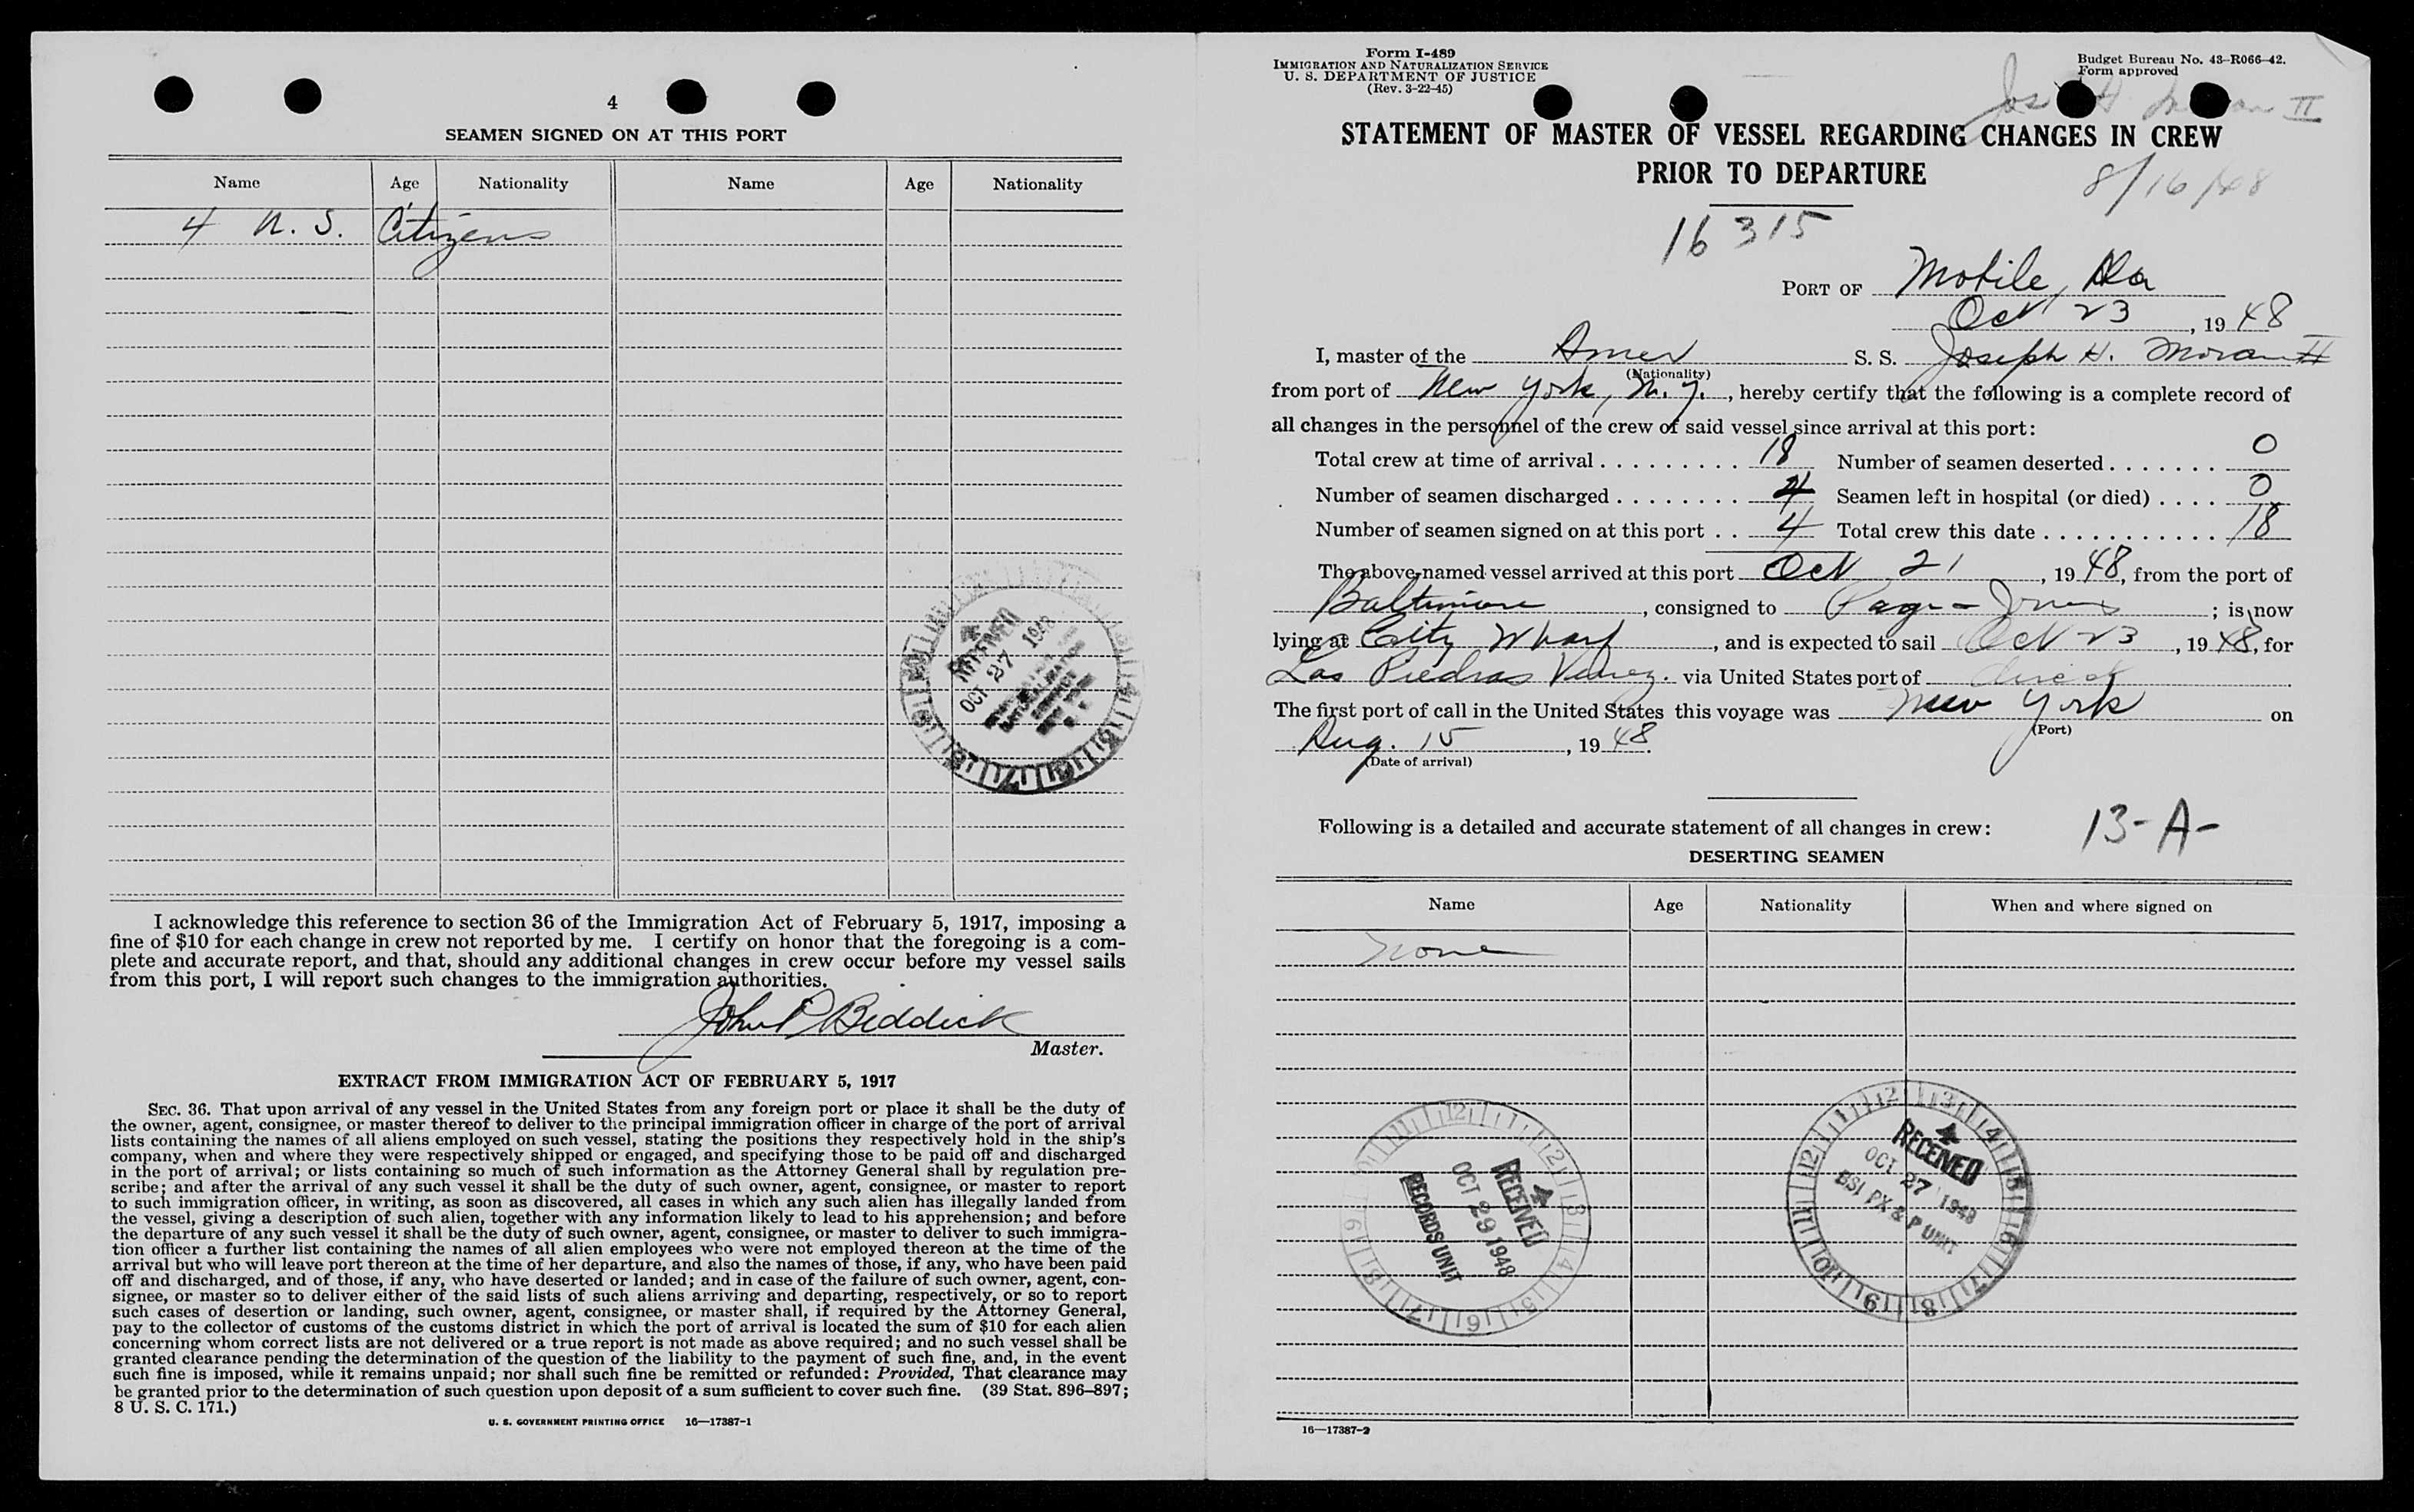 4
SEAMEN SIGNED ON AT THIS PORT
Name Age Nationality Name Age Nationality
4 U. S. Citizens
RECEIVED
OCT 27 1948
I acknowledge this reference to section 36 of the Immigration Act of February 5, 1917, imposing a
fine of $10 for each change in crew not reported by me. I certify on honor that the foregoing is a com-
plete and accurate report, and that, should any additional changes in crew occur before my vessel sails
from this port, I will report such changes to the immigration authorities.
John P Beddick
Master.
EXTRACT FROM IMMIGRATION ACT OF FEBRUARY 5, 1917
SEC. 36. That upon arrival of any vessel in the United States from any foreign port or place it shall be the duty of
the owner, agent, consignee, or master thereof to deliver to the principal immigration officer in charge of the port of arrival
lists containing the names of all aliens employed on such vessel, stating the positions they respectively hold in the ship's
company, when and where they were respectively shipped or engaged, and specifying those to be paid off and discharged
in the port of arrival; or lists containing so much of such information as the Attorney General shall by regulation pre-
scribe; and after the arrival of any such vessel it shall be the duty of such owner, agent, consignee, or master to report
to such immigration officer, in writing, as soon as discovered, all cases in which any such alien has illegally landed from
the vessel, giving a description of such alien, together with any information likely to lead to his apprehension; and before
the departure of any such vessel it shall be the duty of such owner, agent, consignee, or master to deliver to such immigra-
tion officer a further list containing the names of all alien employees who were not employed thereon at the time of the
arrival but who will leave port thereon at the time of her departure, and also the names of those, if any, who have been paid
off and discharged, and of those, if any, who have deserted or landed; and in case of the failure of such owner, agent, con-
signee, or master so to deliver either of the said lists of such aliens arriving and departing, respectively, or so to report
such cases of desertion or landing, such owner, agent, consignee, or master shall, if required by the Attorney General,
pay to the collector of customs of the customs district in which the port of arrival is located the sum of $10 for each alien
concerning whom correct lists are not delivered or a true report is not made as above required; and no such vessel shall be
granted clearance pending the determination of the question of the liability to the payment of such fine, and, in the event
such fine is imposed, while it remains unpaid; nor shall such fine be remitted or refunded: Provided, That clearance may
be granted prior to the determination of such question upon deposit of a sum sufficient to cover such fine. (39 Stat. 896–897;
8 U. S. C. 171.)
U. S. GOVERNMENT PRINTING OFFICE 16—17387-1
Form I-489
IMMIGRATION AND NATURALIZATION SERVICE
U. S. DEPARTMENT OF JUSTICE
(Rev. 3-22-45)
Budget Bureau No. 43-R066-42.
Form approved
STATEMENT OF MASTER OF VESSEL REGARDING CHANGES IN CREW
PRIOR TO DEPARTURE
8/16/48
16315
PORT OF Mobile, Ala
Oct 23, 1948
I, master of the Amer S. S. Joseph H. Moran II
(Nationality)
from port of New York, N. Y., hereby certify that the following is a complete record of
all changes in the personnel of the crew of said vessel since arrival at this port:
Total crew at time of arrival . . . . . . . . . 18 Number of seamen deserted . . . . . . . 0
Number of seamen discharged . . . . . . . . 4 Seamen left in hospital (or died) . . . . 0
Number of seamen signed on at this port . . 4 Total crew this date . . . . . . . . . . . 18
The above-named vessel arrived at this port Oct 21, 1948, from the port of
Baltimore, consigned to Page-Jones; is now
lying at City Wharf, and is expected to sail Oct 23, 1948, for
Las Piedras Venez. via United States port of direct
The first port of call in the United States this voyage was New York on
(Port)
Aug. 15, 1948.
(Date of arrival)
13-A-
Following is a detailed and accurate statement of all changes in crew:
DESERTING SEAMEN
Name Age Nationality When and where signed on
None
RECEIVED
OCT 29 1948
RECORDS UNIT
RECEIVED
OCT 27 1948
BSI PX & P UNIT
16—17387-2